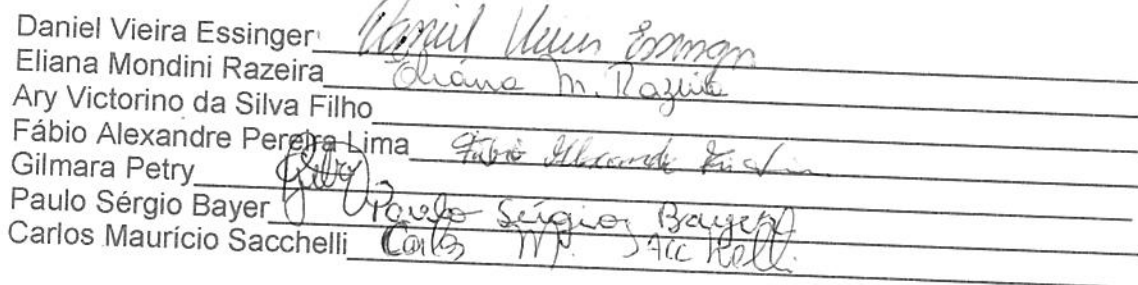 Daniel Vieira Essinger Daniel Vieira Essinger
Eliana Mondini Razeira Eliana M. Razeira
Ary Victorino da Silva Filho
Fábio Alexandre Pereira Lima Fábio Alexandre
Gilmara Petry
Paulo Sérgio Bayer Paulo Sérgio Bayer
Carlos Maurício Sacchelli Carlos M. Sacchelli